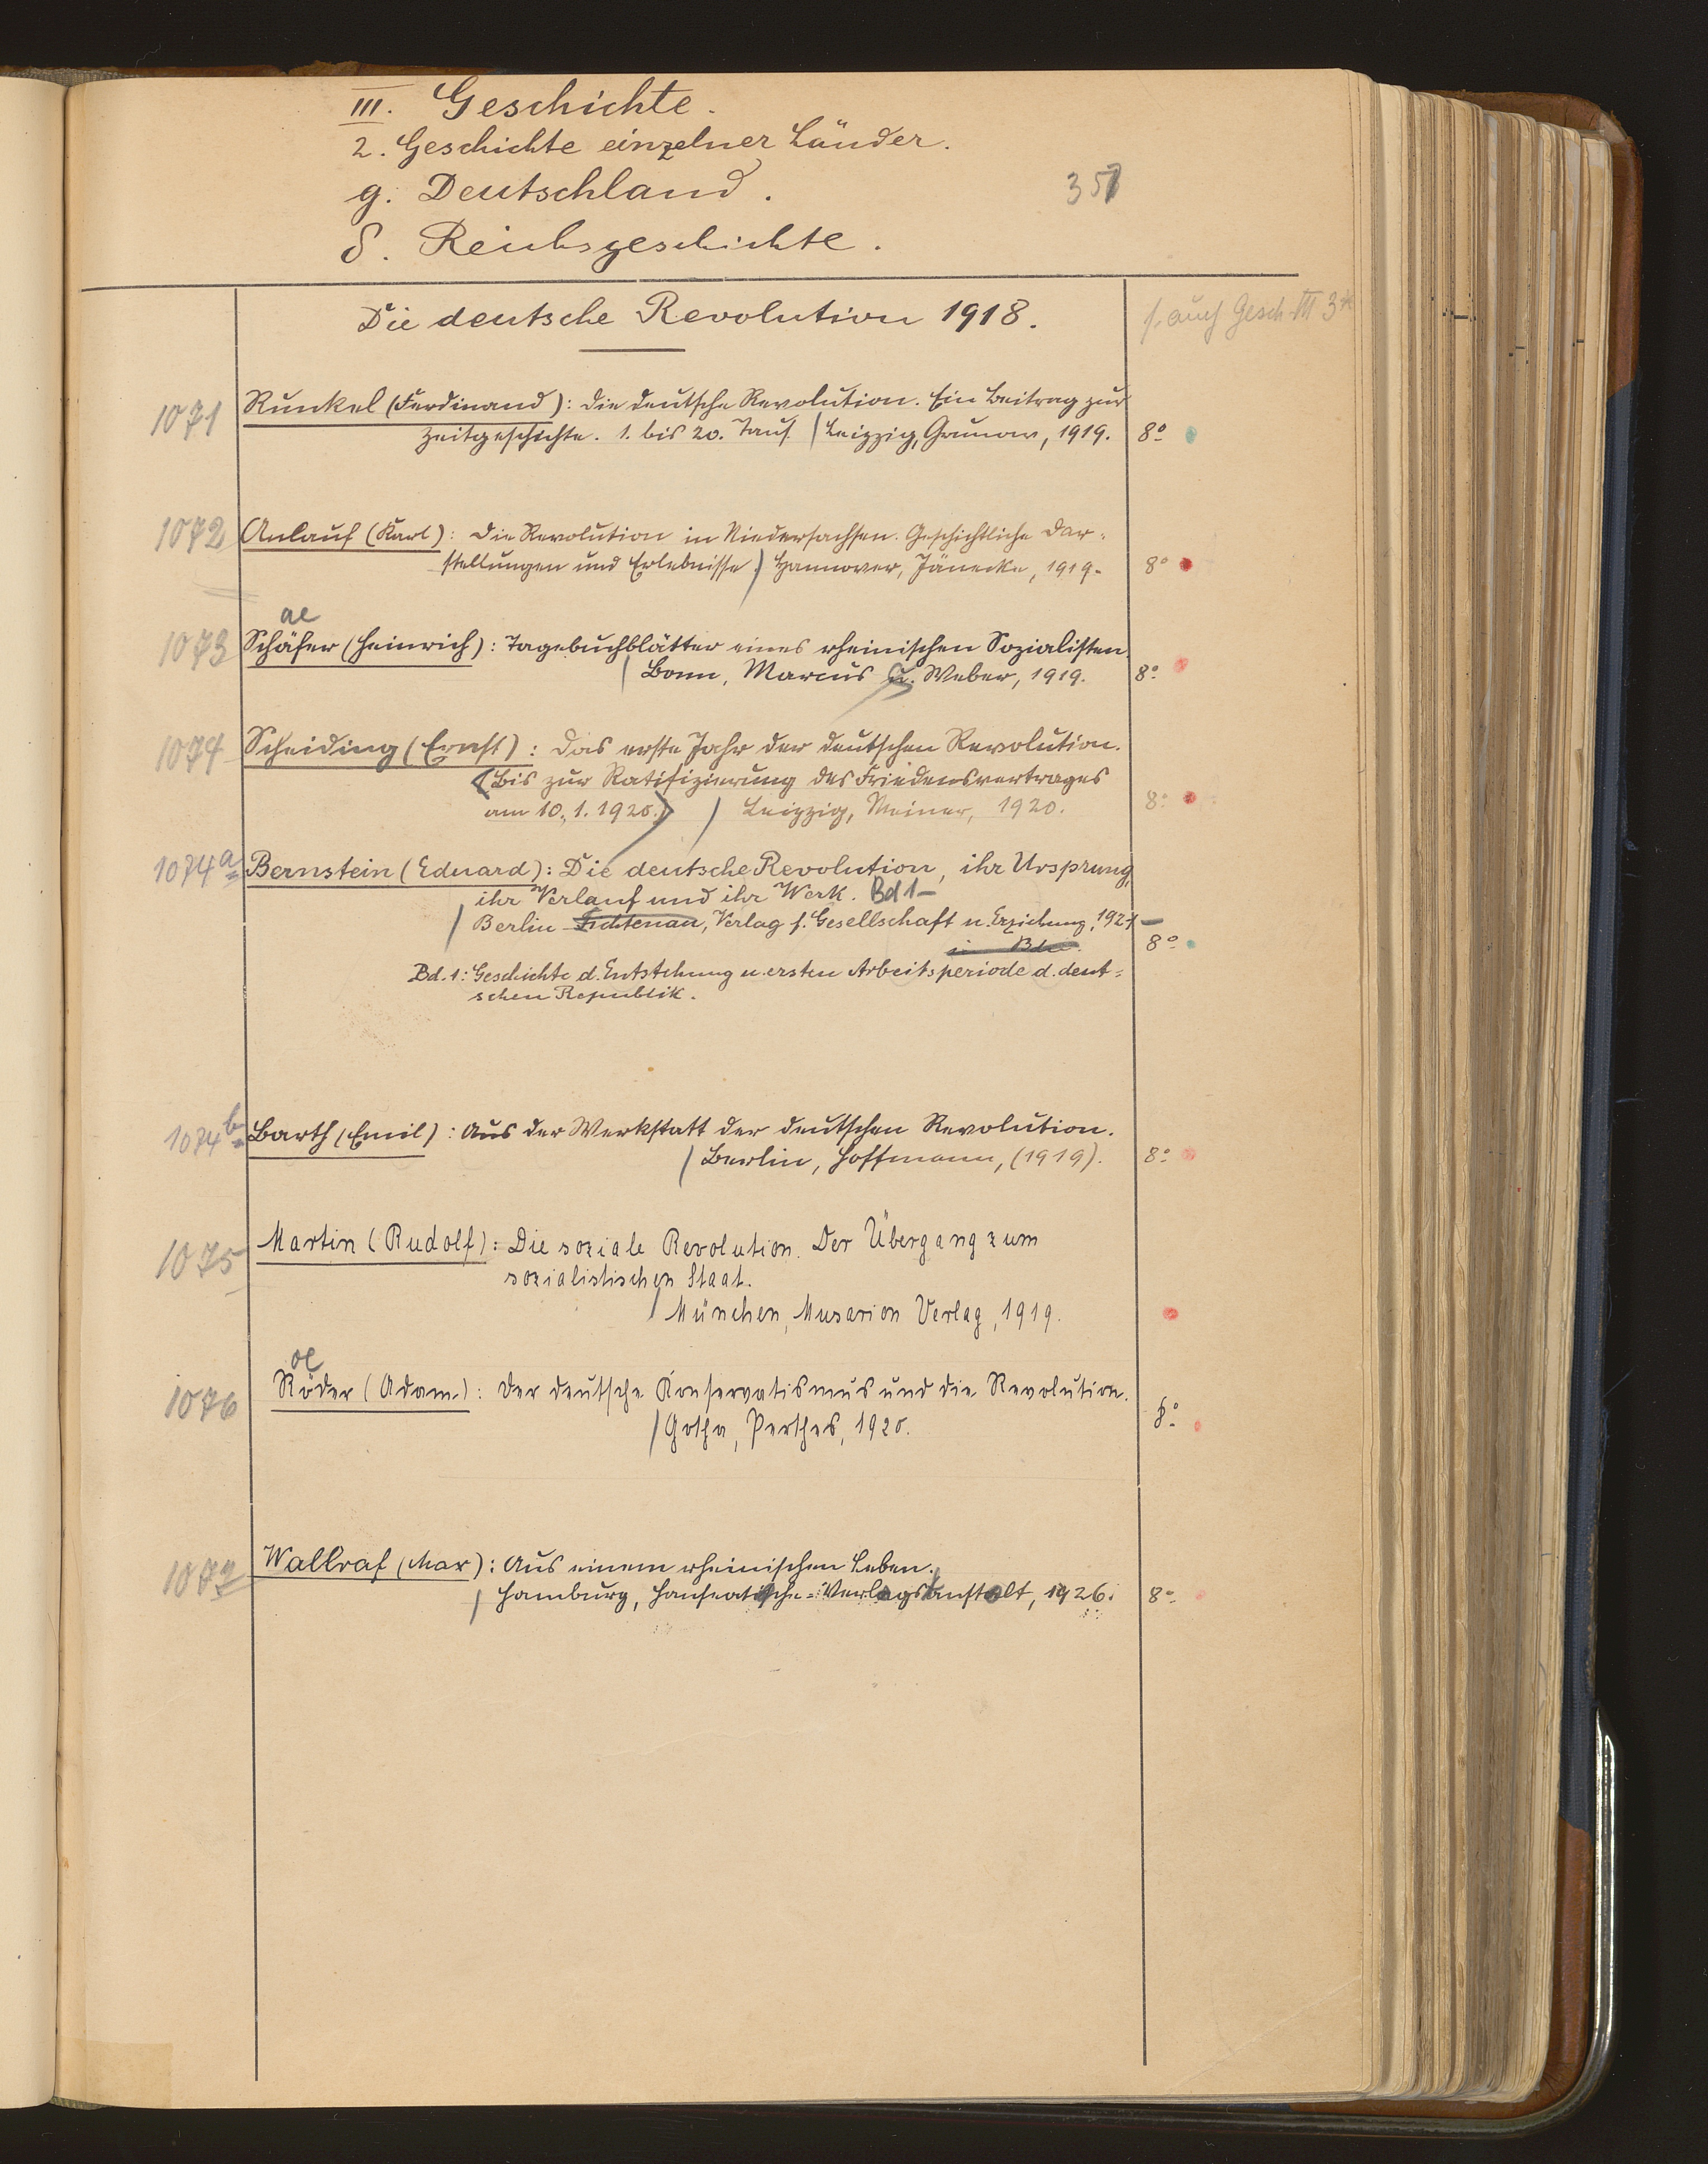 III. Geschichte.
2. Geschichte einzelner Länder.
g. Deutschland.
357
δ. Reichsgeschichte.
Die deutsche Revolution 1918.
s. auch Gesch. III 3
1071 Runkel (Ferdinand): Die deutsche Revolution. Ein Beitrag zur
Zeitgeschichte. 1. bis 20. Taus. / Leipzig, Grunow, 1919. 8°
1072 Anlauf (Karl): Die Revolution in Niedersachsen. Geschichtliche Dar=
stellungen und Erlebnisse.) Hannover, Jänecke, 1919. 8°
ae
1073 Schäfer (Heinrich): Tagebuchblätter eines rheinischen Sozialisten.
/ Bonn, Marcus u. Weber, 1919. 8°
1074 Scheiding (Ernst): Das erste Jahr der deutschen Revolution.
(Bis zur Ratifizierung des Friedensvertrages
am 10.1.1920.) / Leipzig, Meiner, 1920. 8°
1074a Bernstein (Eduard): Die deutsche Revolution, ihr Ursprung,
ihr Verlauf und ihr Werk. Bd 1–
/ Berlin-Fichtenau, Verlag f. Gesellschaft u. Erziehung, 1921–
in Bdn. 8°
Bd. 1: Geschichte d. Entstehung u. ersten Arbeitsperiode d. deut=
schen Republik.
1074b Barth (Emil): Aus der Werkstatt der deutschen Revolution.
/ Berlin, Hoffmann, (1919). 8°
1075 Martin (Rudolf): Die soziale Revolution. Der Übergang zum
sozialistischen Staat.
/ München, Musarion Verlag, 1919.
oe
1076 Röder (Adam): Der deutsche Konservatismus und die Revolution.
/ Gotha, Perthes, 1920. 8°
1077 Wallraf (Max): Aus einem rheinischen Leben.
/ Hamburg, Hanseatische Verlagsanstalt, 1926. 8°